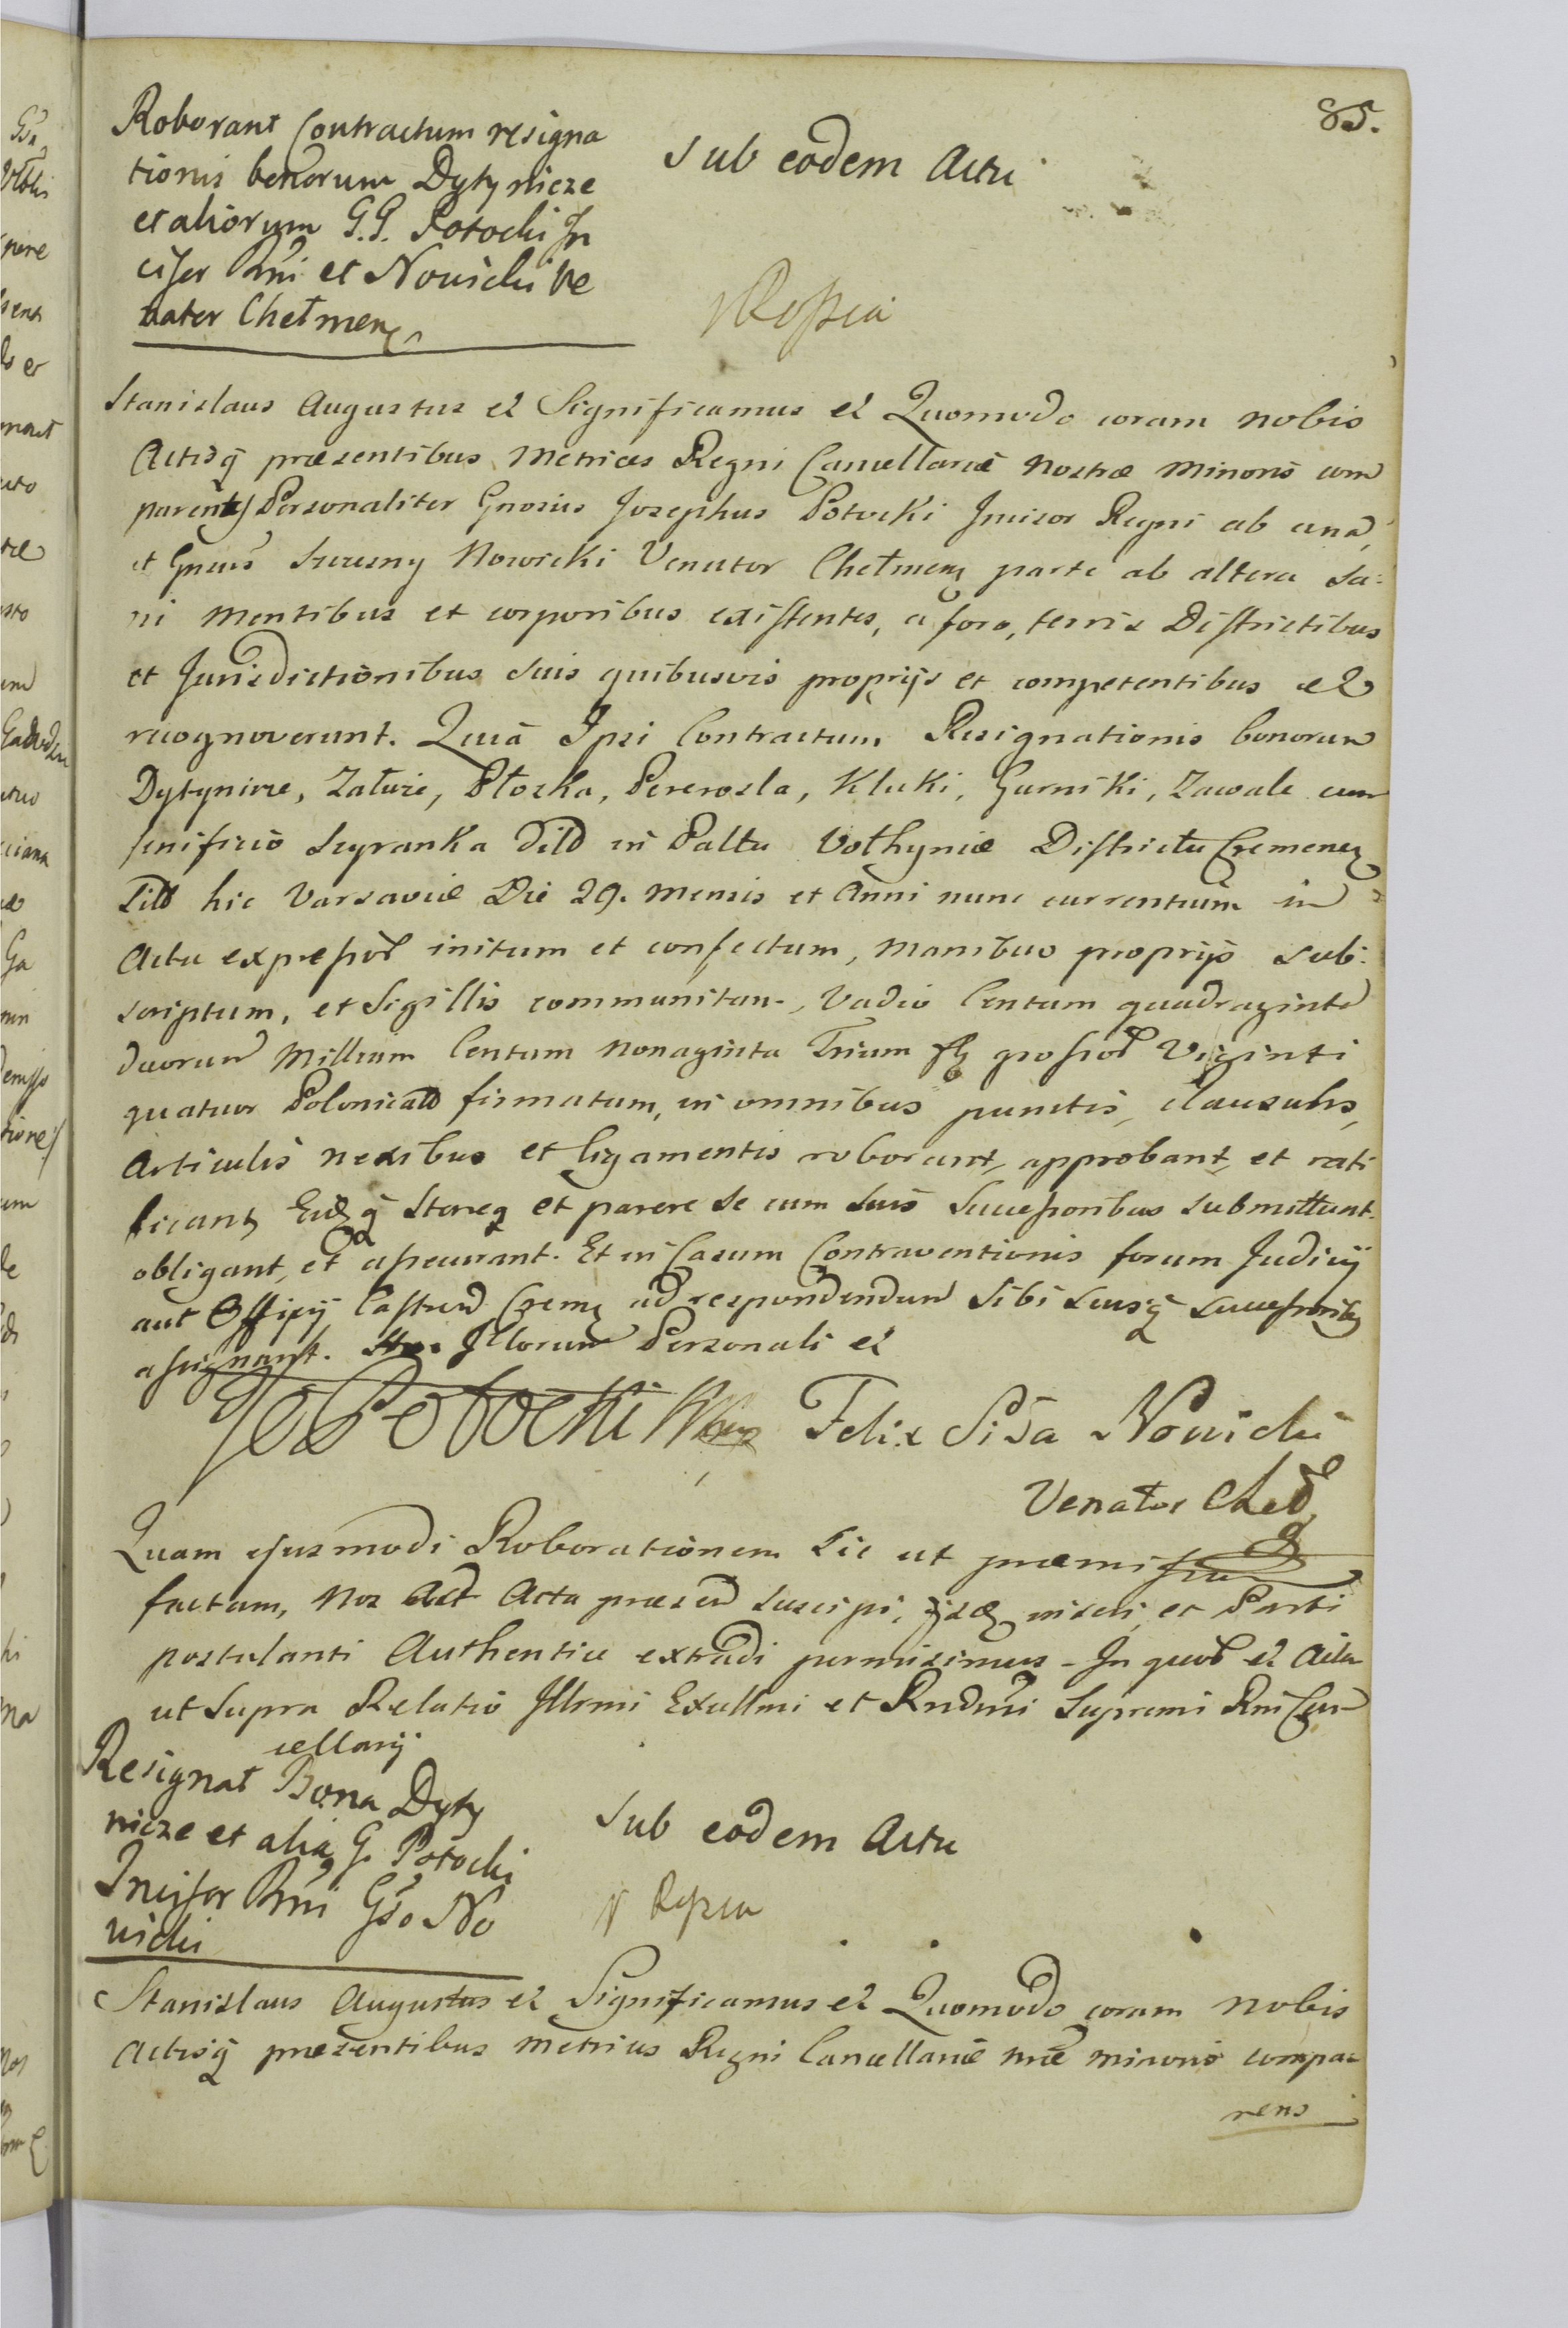 85.
Roborant Contractum resigna
tionis bonorum Dytynicze
et aliorum G.G. Potocki In
cisor Rni et Nowicki Ve
nator Chełmen
Sub eodem Actu
Stanislaus Augustus et Significamus et Quomodo coram nobis
Actisq præsentibus Metrices Regni Cancellariæ Nostræ Minoris com
parentes Personaliter Gnosus Josephus Potocki Incisor Regni ab una,
et Gnsus Szczesny Nowicki Venator Chełmen parte ab altera Sa:
ni Mentibus et corporibus existentes, a foro, terris Districtibus
et Jurisdictionibus suis quibusvis proprijs et competentibus et
recognoverunt. Quia Ipsi Contractum Resignationis bonorum
Dytynicze, Zaturze, Płoska, Pererosla, Kluki, Gurniki, Zawale cum
Supranka in Paltu Vołhyniæ Districtu Cremenez
hic Varsaviæ Die 29. Mensis et Anni nunc currentium in
Actu expressor initum et confectum, Manibus proprijs sub:
scriptum, et Sigillis communitum, Vadio Centum quadraginta
duorum Millium Centum Nonaginta Trium fl grossor Viginti
quatuor Polonical firmatum, in omnibus punctis, clausulis,
Articulis nexibus et ligamentis roborant, approbant, et rati
ficant, Eidq Stareq et parere se cum suis Successoribus submittunt.
obligant, et assecurant. Et in Casum Contraventionis forum Judicij
aut Officij Castren Crem ad respondendum Sibi Suisq Successorib
assignant. Illorum Personali et
Jos Potocki Felix Nowicki
Venator Cheł
Quam ejusmodi Roborationem Sic ut præmissum
factam, Nos Ad Acta præsen suscipi, inseri, et Parti
postulanti Authentice extradi permisimus - In quor et Actu
ut Supra Relatio Illrmi Excllmi et Rndmi Supremi Rni Can
cellarij
Resignat Bona Dyty
nicze et alia G. Potocki
Incisor Rni Gso No
wicki
Sub eodem Actu
Stanislaus Augustus et Significamus et Quomodo coram nobis
Actisq præsentibus Metrices Regni Cancellariæ nræ minoris compa
rens